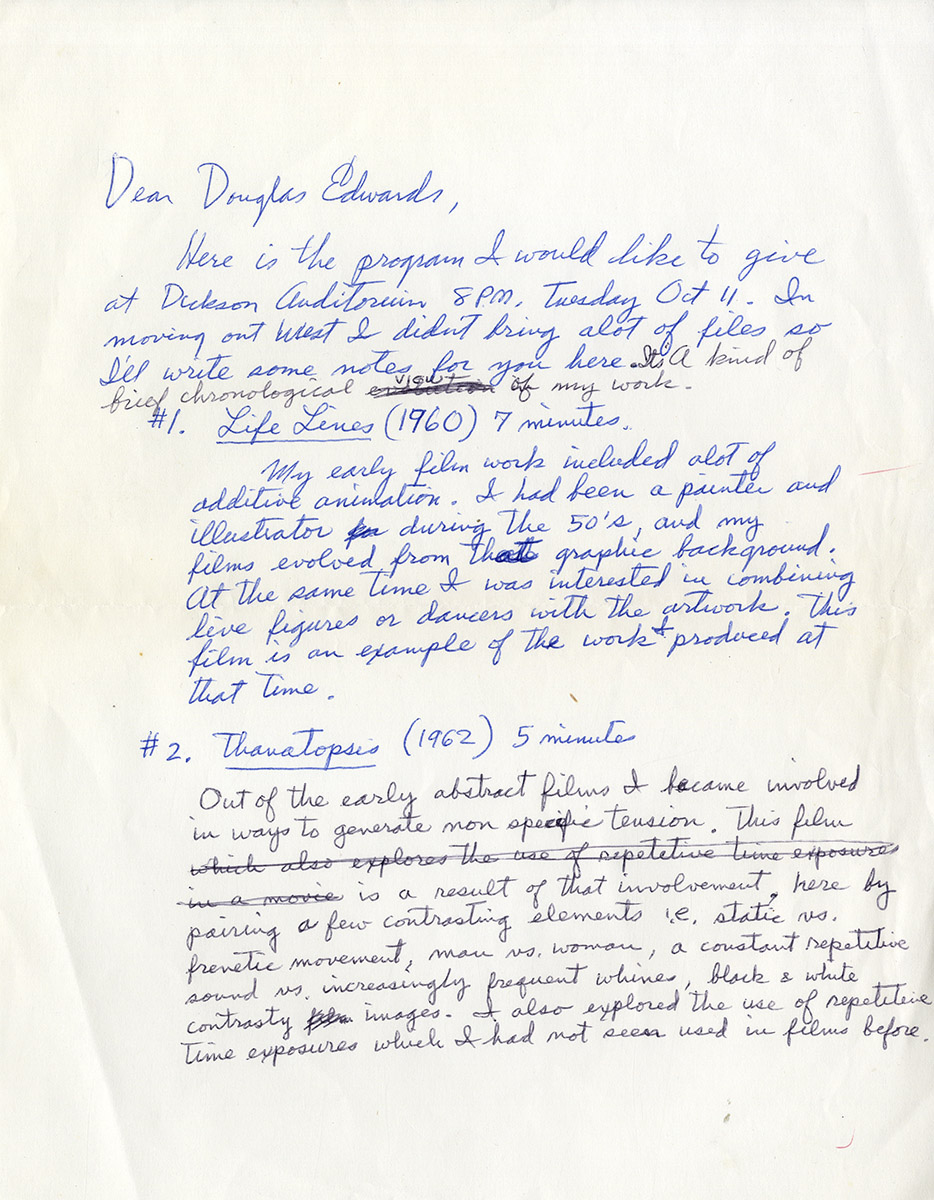 Dear Douglas Edwards,
Here is the program I would like to give
at Dickson Auditorium 8 P.M. Tuesday Oct 11. In
moving out West I didn't bring alot of files so
I'll write some notes for you here. It's A kind of
brief chronological view of my work.
#1. Life Lines (1960) 7 minutes.
My early film work included alot of
additive animation. I had been a painter and
illustrator during the 50's, and my
films evolved from that graphic background.
At the same time I was interested in combining
live figures or dancers with the artwork. This
film is an example of the work I produced at
that time.
#2. Thanatopsis (1962) 5 minutes
Out of the early abstract films I became involved
in ways to generate non specific tension. This film
which also explores the use of repetetive time exposures
in a movie is a result of that involvement, here by
pairing a few contrasting elements i.e. static vs.
frenetic movement, man vs. woman, a constant repetitive
sound vs. increasingly frequent whines, black & white
contrasty images. I also explored the use of repetitive
time exposures which I had not seen used in films before.